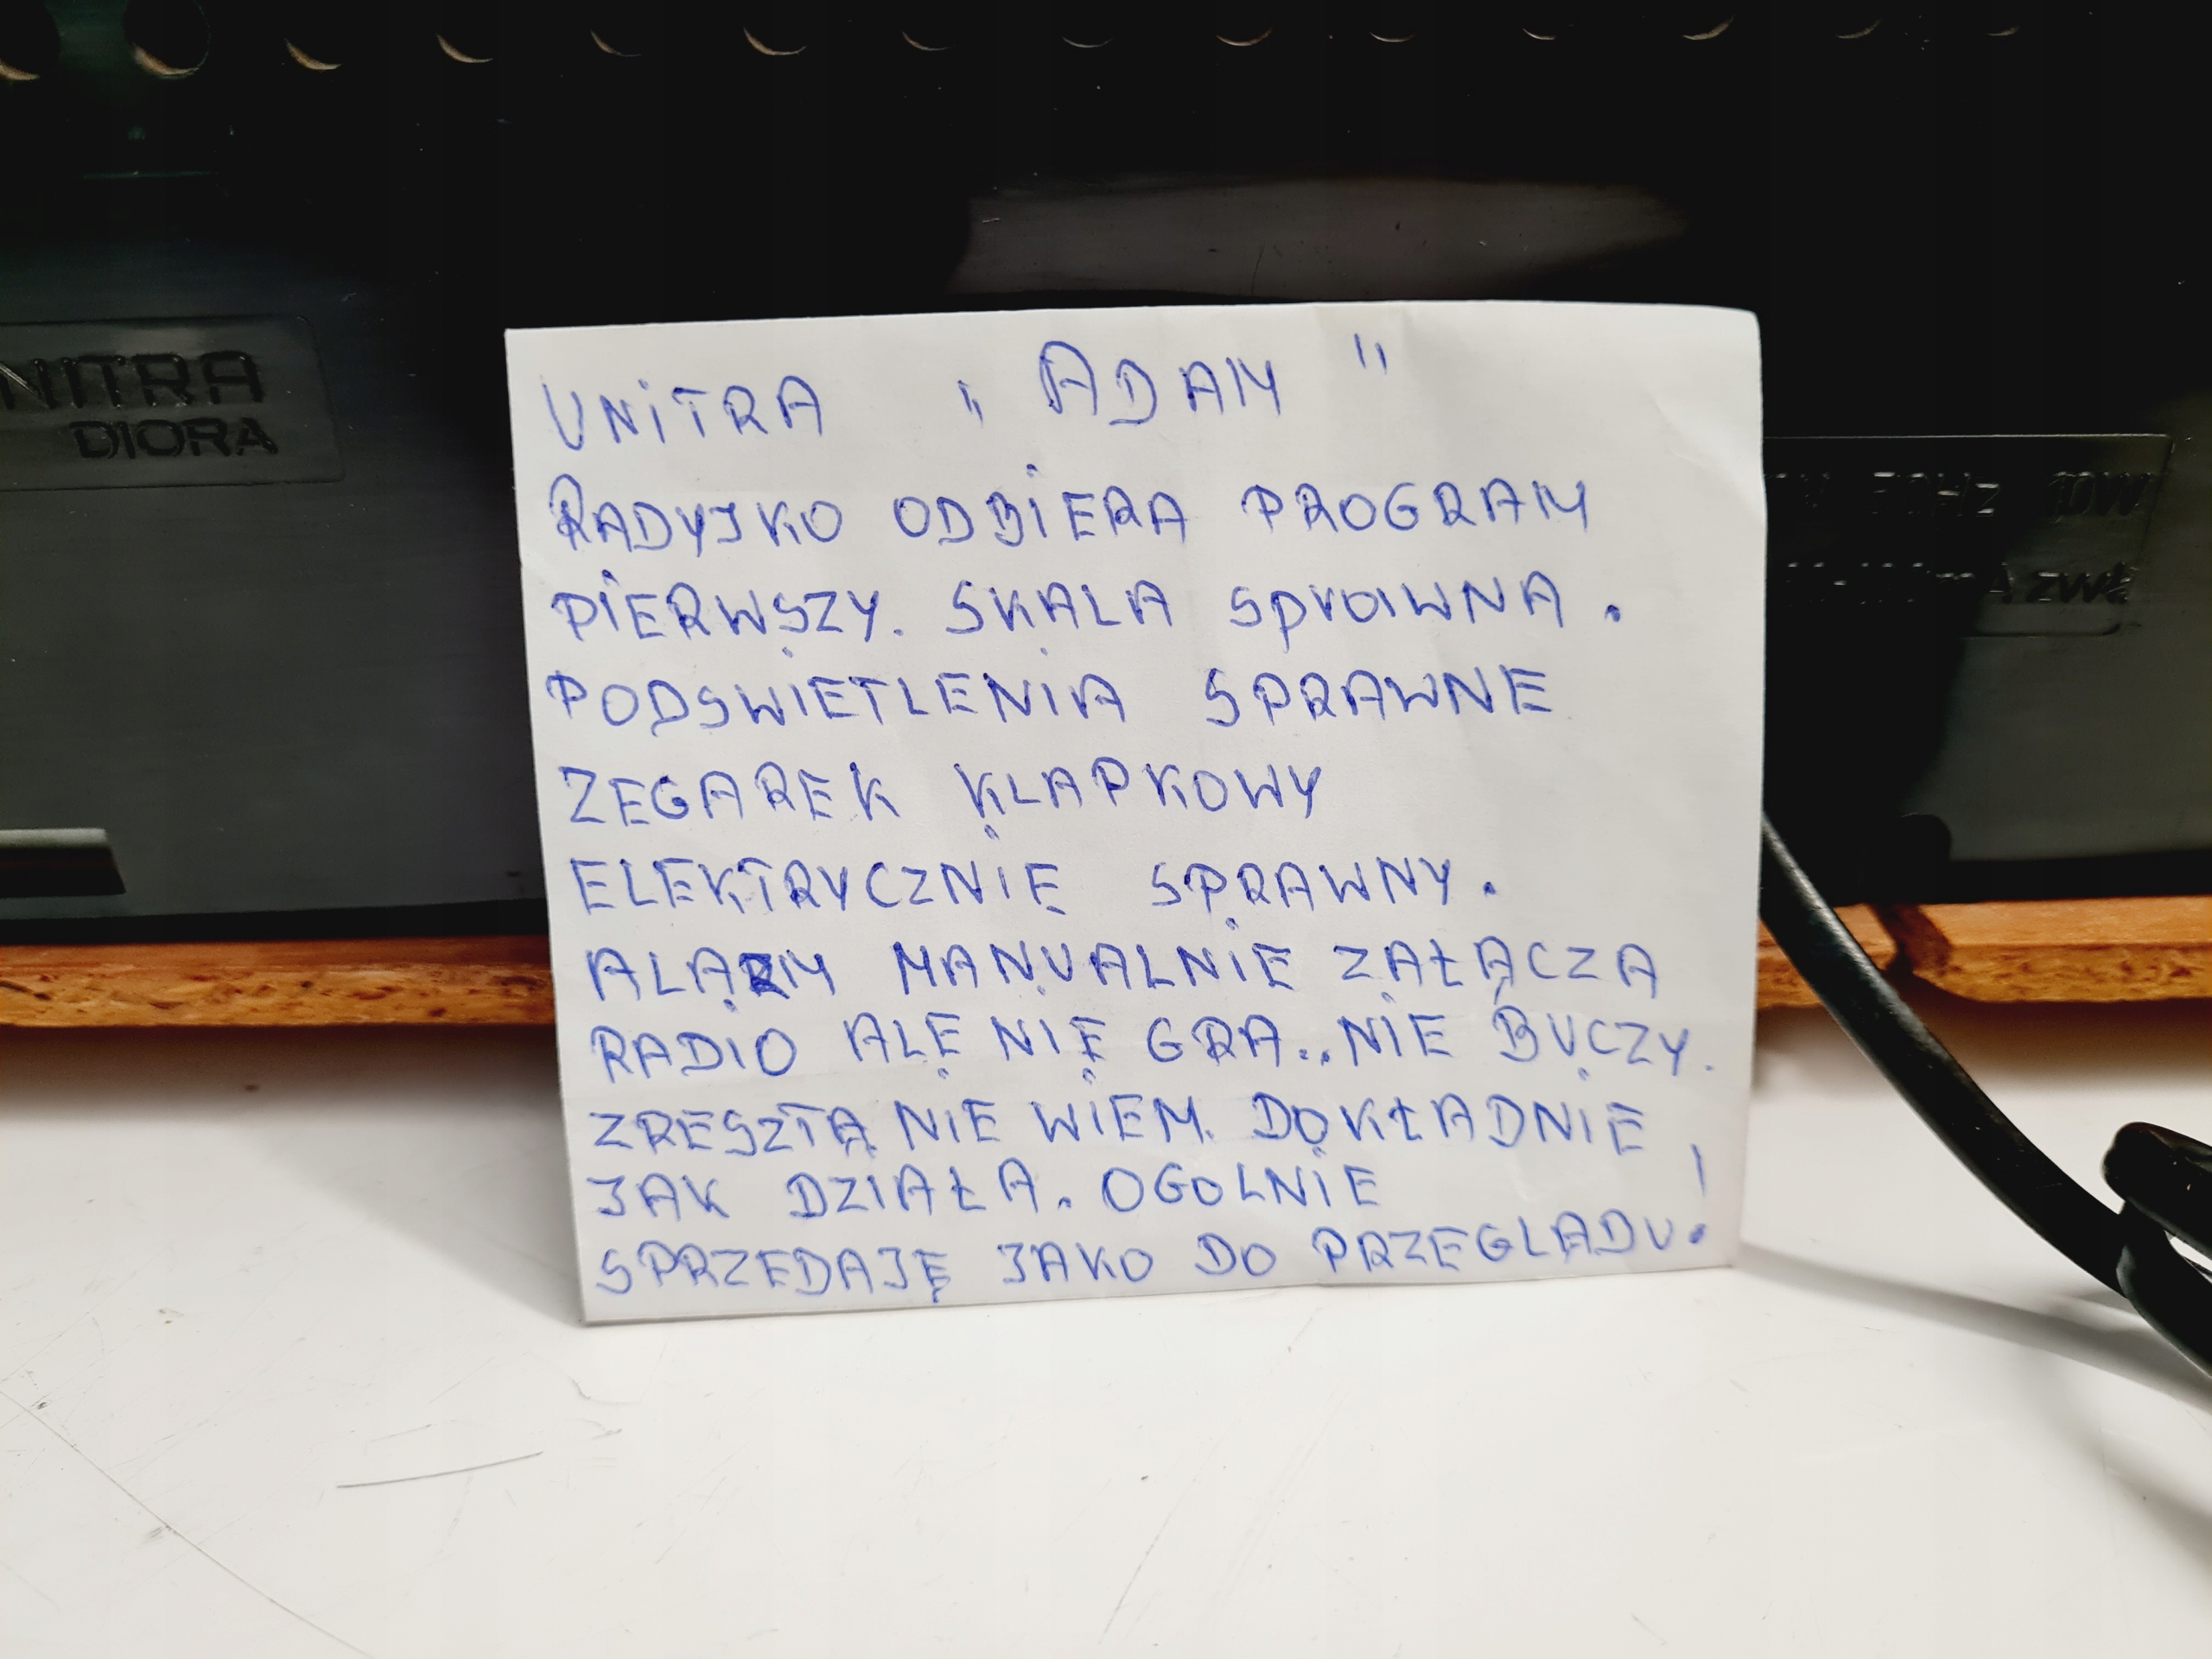 UNITRA „ADAM"
RADYJKO ODBIERA PROGRAM
PIERWSZY. SKALA SPRAWNA.
PODSWIETLENIA SPRAWNE
ZEGAREK KLAPKOWY
ELEKTRYCZNIE SPRAWNY.
ALARM MANUALNIE ZAŁĄCZA
RADIO ALE NIE GRA.. NIE BUCZY.
ZRESZTA NIE WIEM DOKŁADNIE
JAK DZIAŁA. OGOLNIE
SPRZEDAJĘ JAKO DO PRZEGLADU!
NITRA
DIORA
50Hz 10W
A zwł